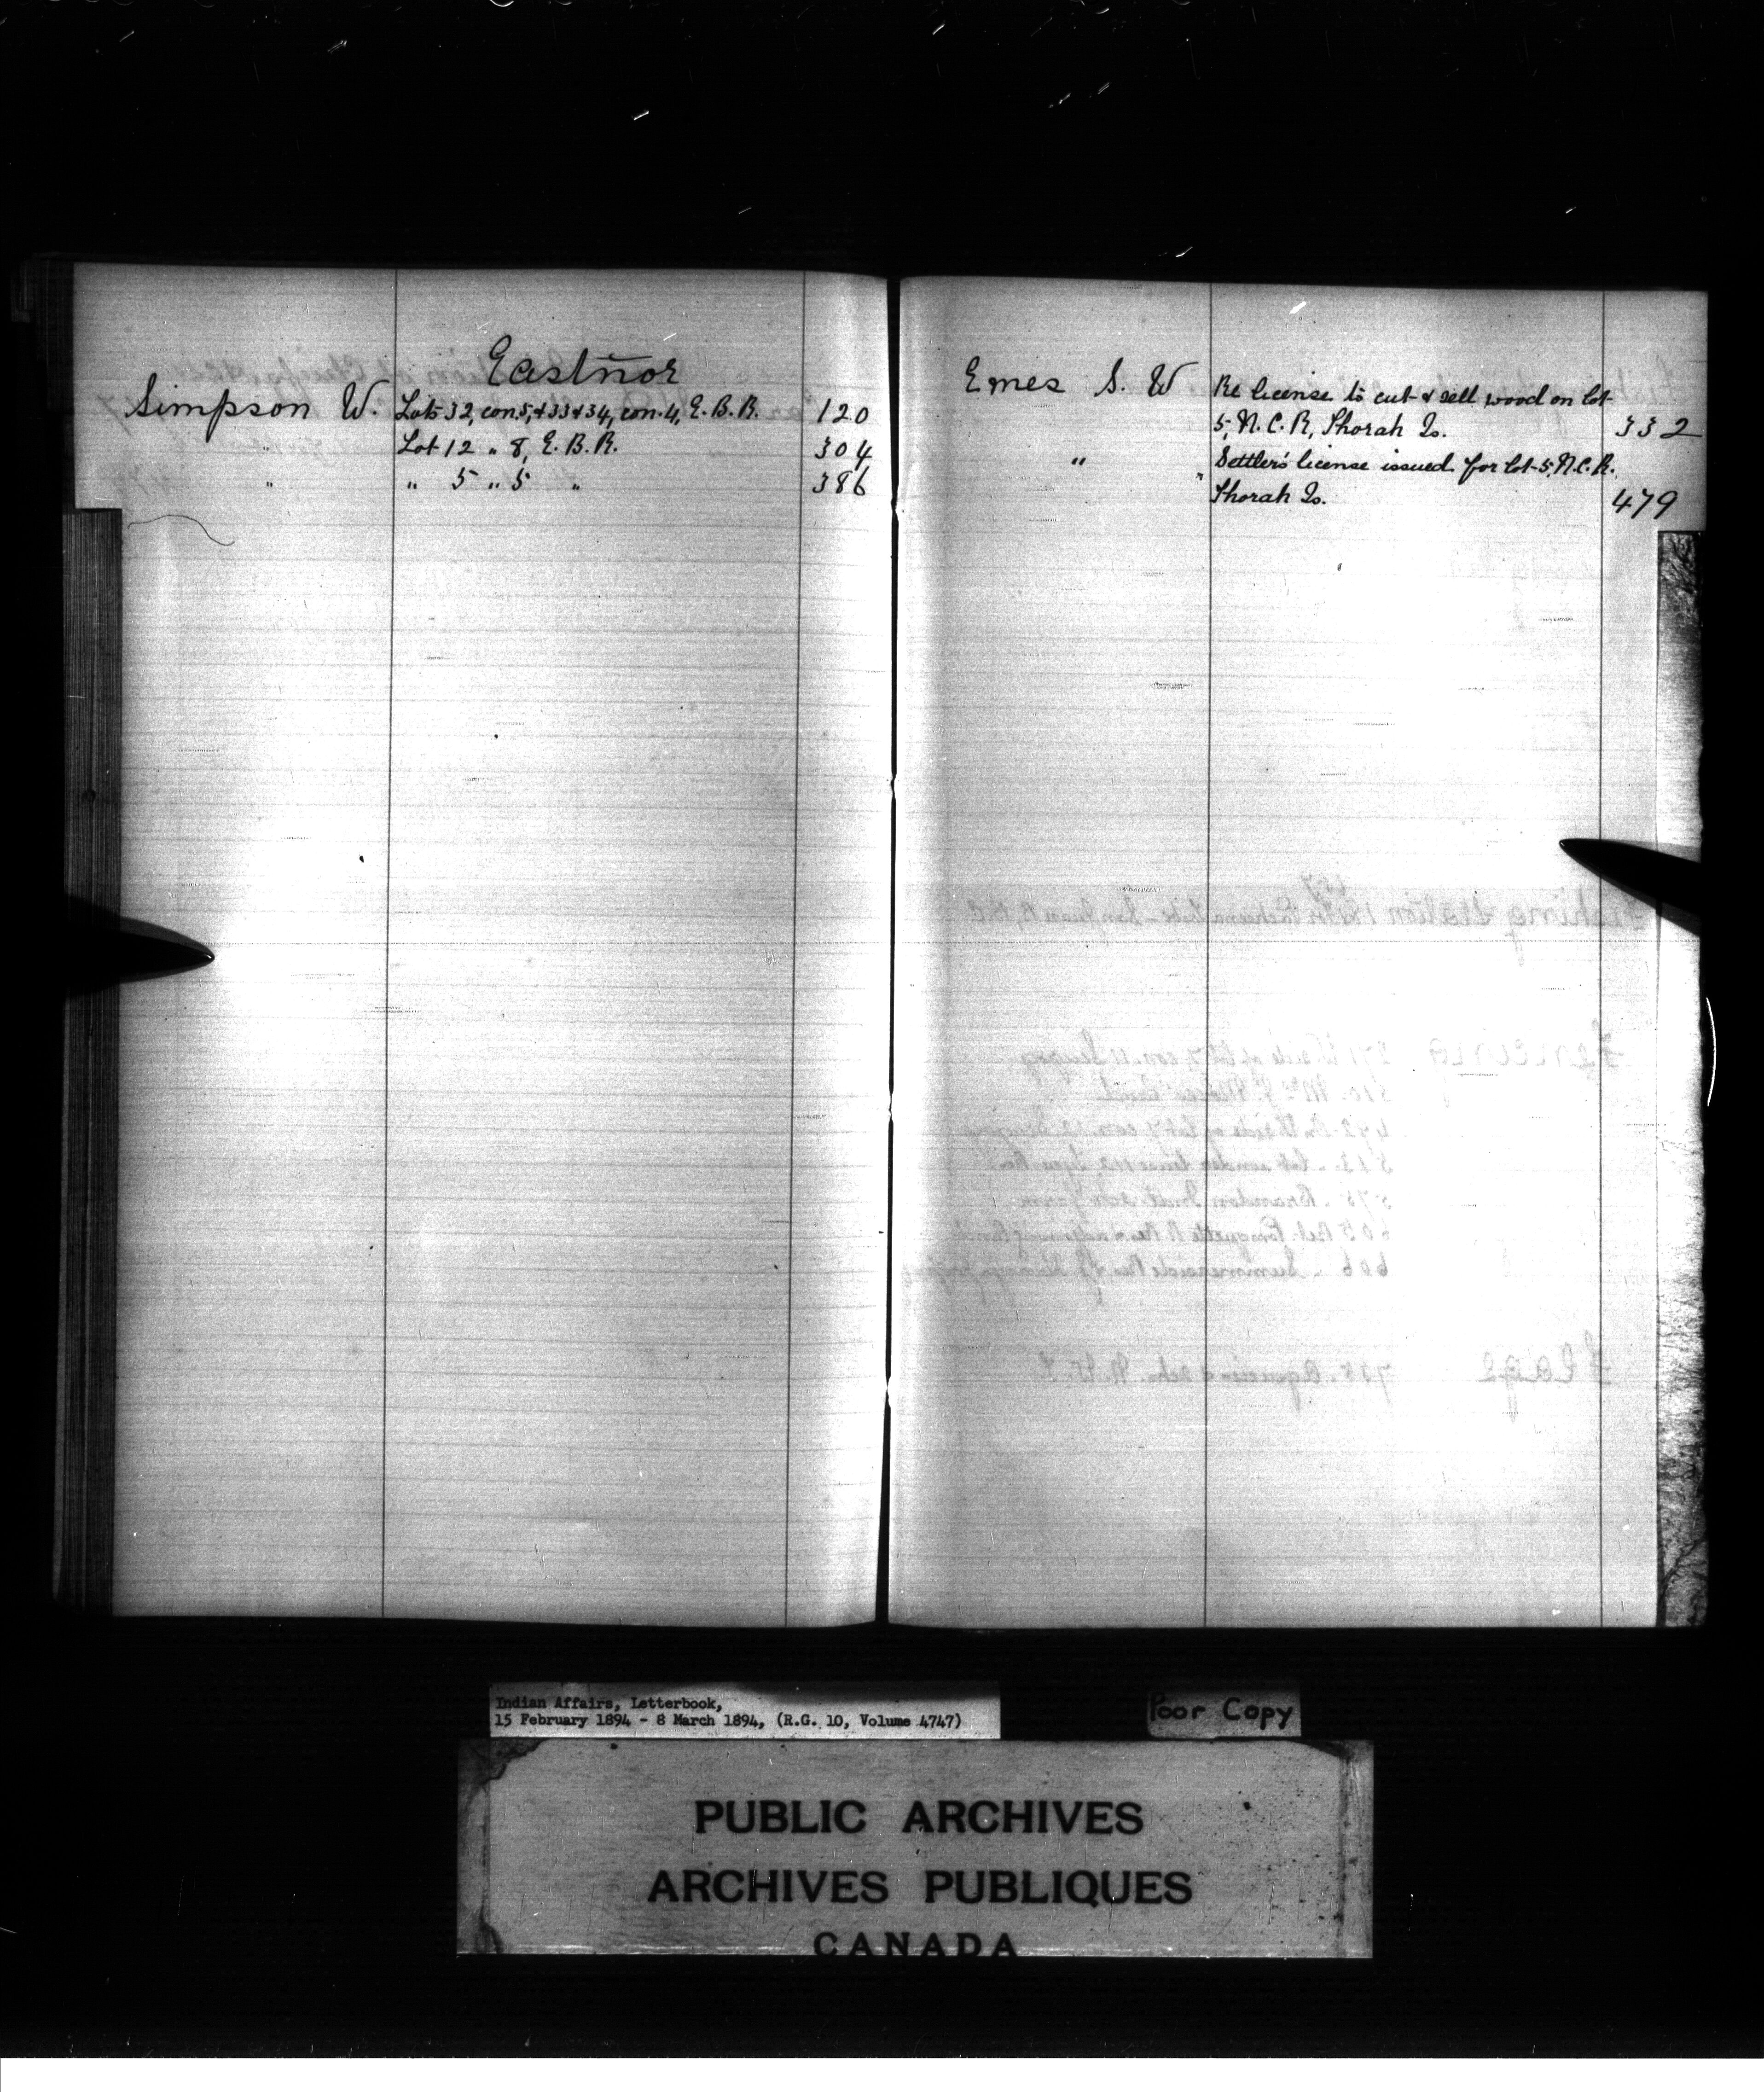 Eastnor
Simpson W. Lots 32, con. 5, & 33 & 34, con. 4, E. B. R. 120
" Lot 12 " 8, E. B. R. 304
" " 5 " 5 " 386
Emes S. W Re license to cut & sell wood on lot
5, N. C. R, Thorah Is. 332
" " Settler's license issued for lot 5, N. C. R.
Thorah Is. 479
Indian Affairs, Letterbook,
15 February 1894 - 8 March 1894, (R.G. 10, Volume 4747)
Poor Copy
PUBLIC ARCHIVES
ARCHIVES PUBLIQUES
CANADA